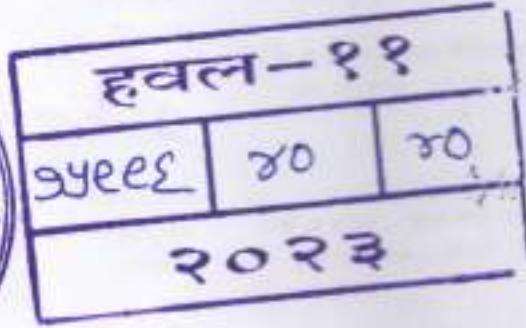 हवल-११
१५९९६ ४० ४०
२०२३